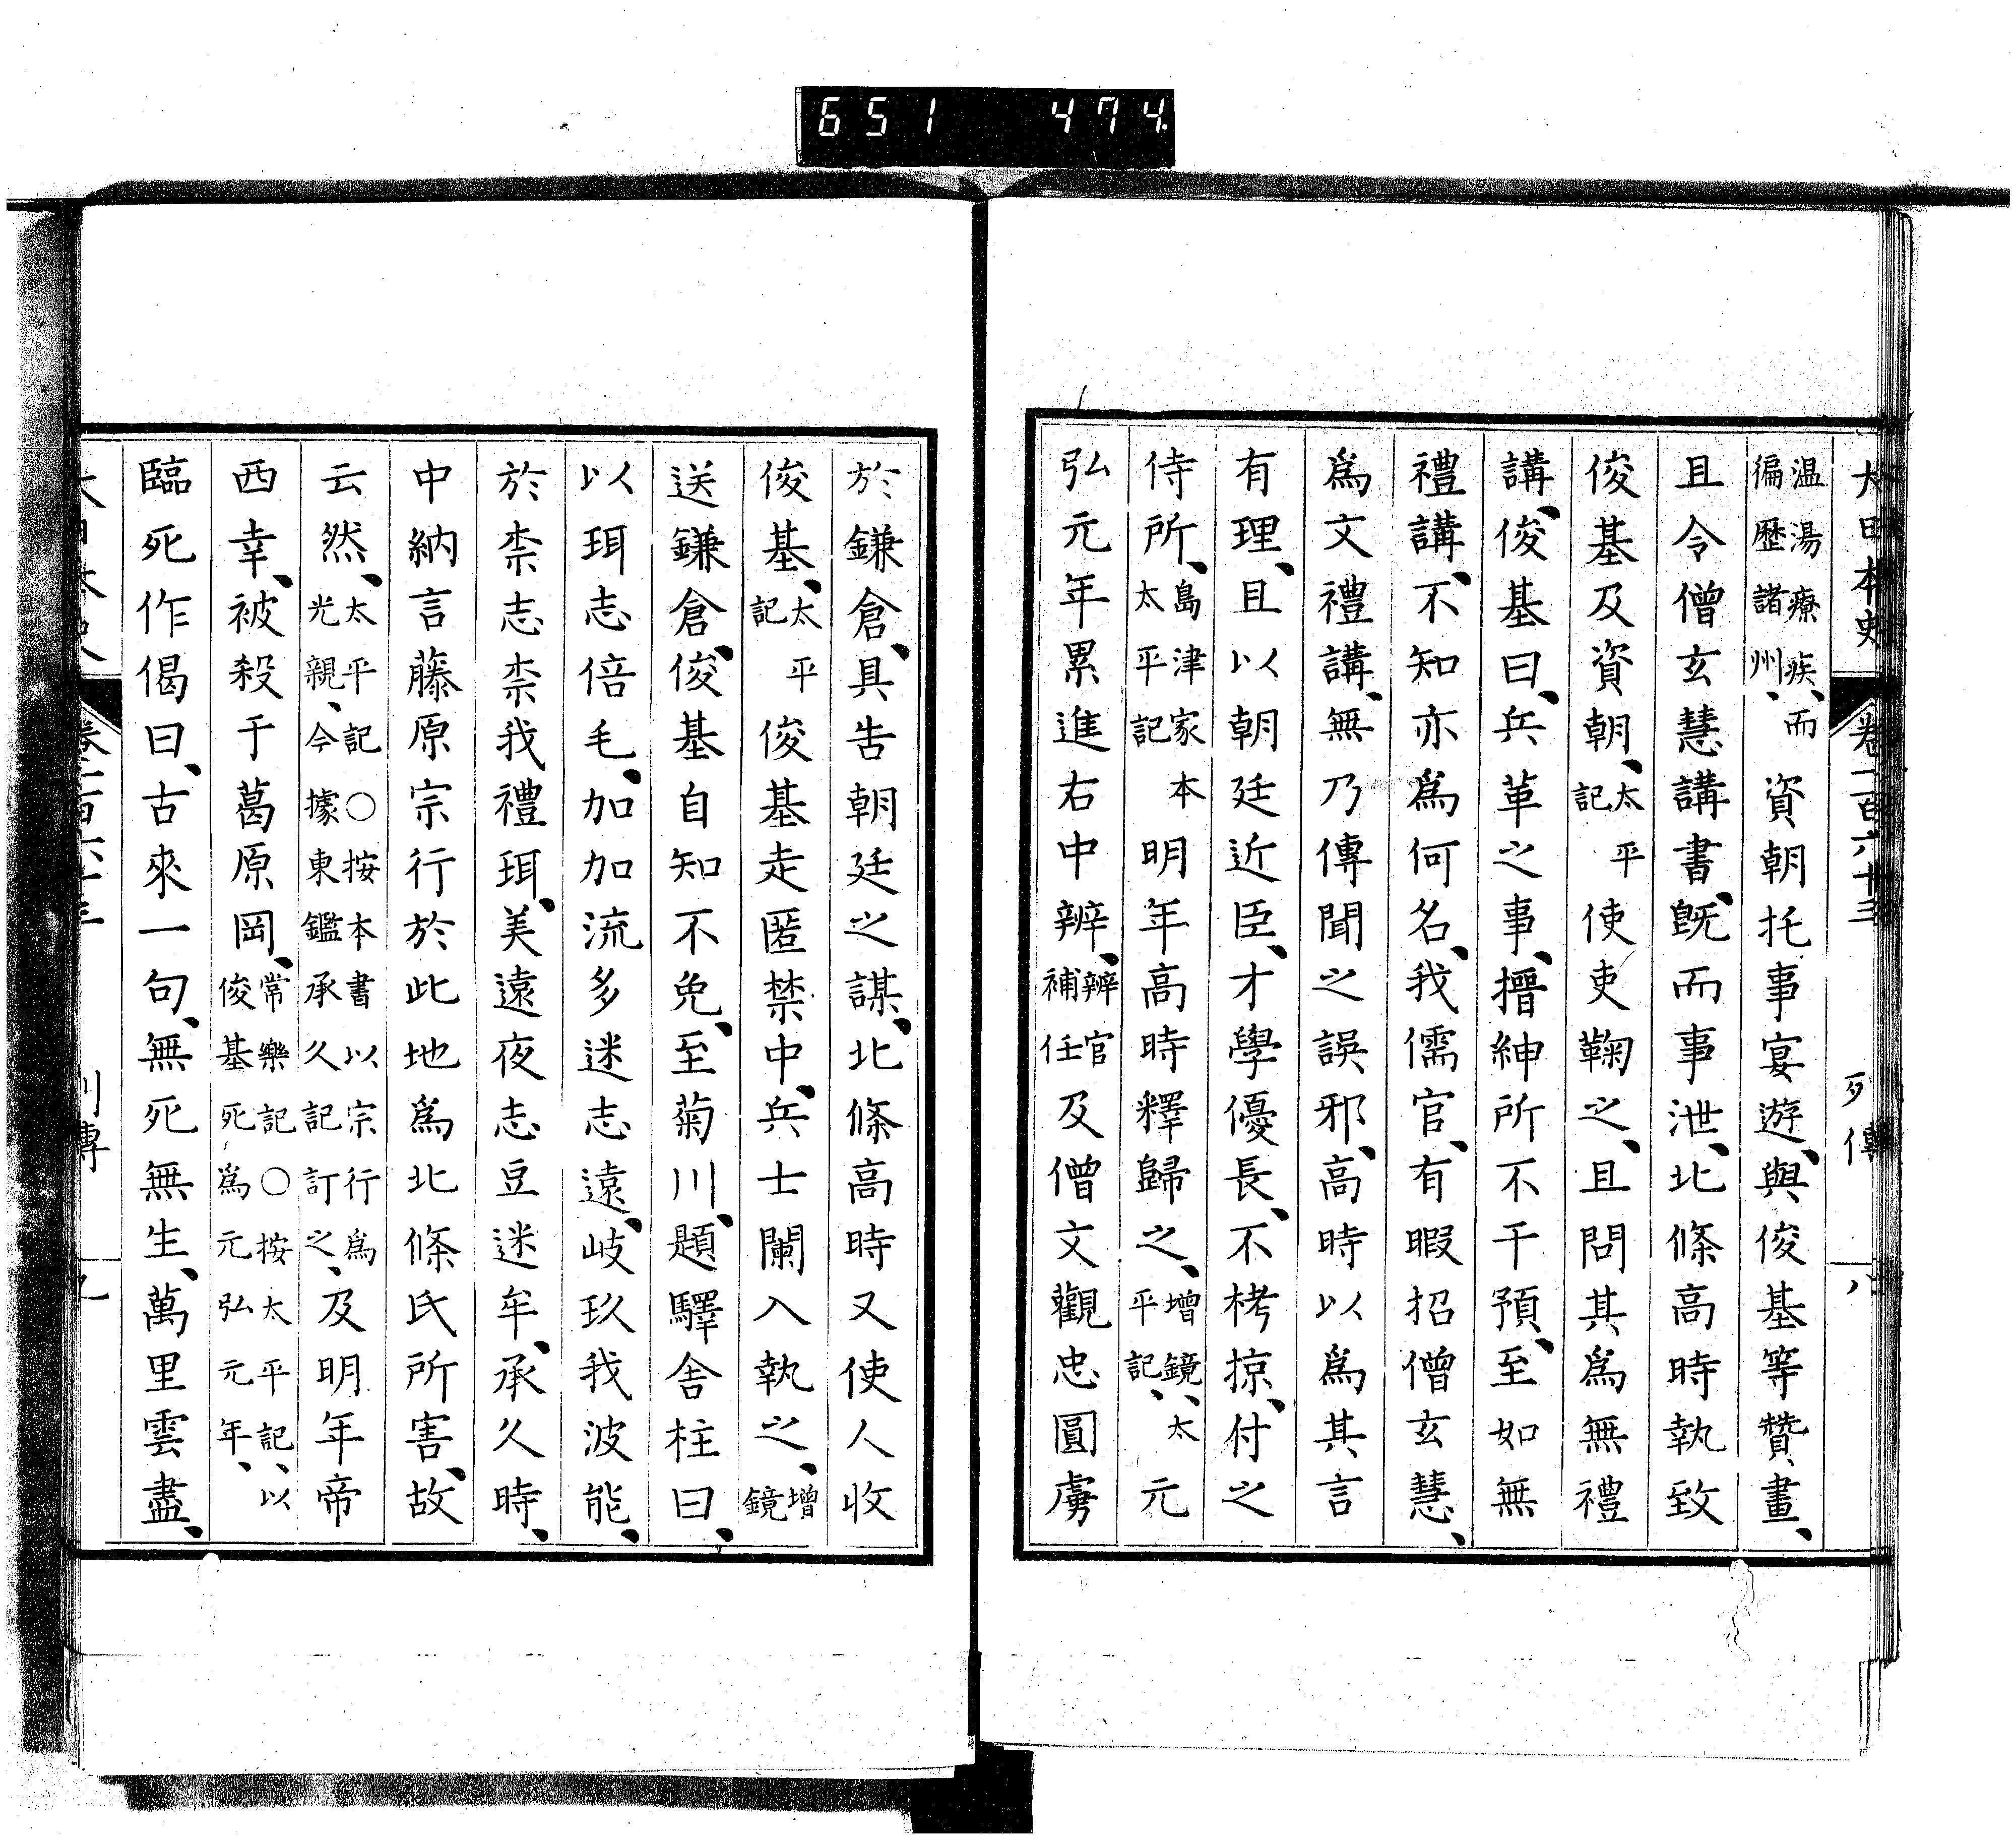 651 474.
大日本史 卷一百六十三 列傳 八
温湯療疾、而徧歷諸州、資朝托事宴遊、與俊基等贊畫、
且令僧玄慧講書、旣而事泄、北條高時執致
俊基及資朝、太平記使吏鞠之、且問其爲無禮
講、俊基曰、兵革之事、搢紳所不干預、至如無
禮講、不知亦爲何名、我儒官、有暇招僧玄慧、
爲文禮講、無乃傳聞之誤邪、高時以爲其言
有理、且以朝廷近臣、才學優長、不栲掠、付之
侍所、島津家本太平記明年高時釋歸之、增鏡、太平記、元
弘元年累進右中辨、辨官補任及僧文觀忠圓虜
於鎌倉、具告朝廷之謀、北條高時又使人收
俊基、太平記俊基走匿禁中、兵士闌入執之、增鏡
送鎌倉、俊基自知不免、至菊川、題驛舍柱曰、
以珥志倍毛、加加流多迷志遠、岐玖我波能、
於柰志柰我禮珥、美遠夜志豆迷牟、承久時、
中納言藤原宗行於此地爲北條氏所害、故
云然、太平記〇按本書以宗行爲光親、今據東鑑承久記訂之、及明年帝
西幸、被殺于葛原岡、常樂記〇按太平記、以俊基死爲元弘元年、
臨死作偈曰、古來一句、無死無生、萬里雲盡、
列傳